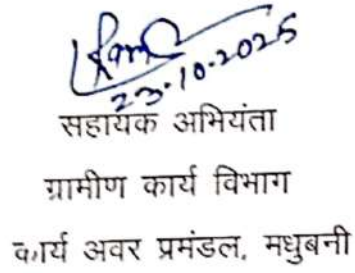 23.10.2025
सहायक अभियंता
ग्रामीण कार्य विभाग
कार्य अवर प्रमंडल, मधुबनी